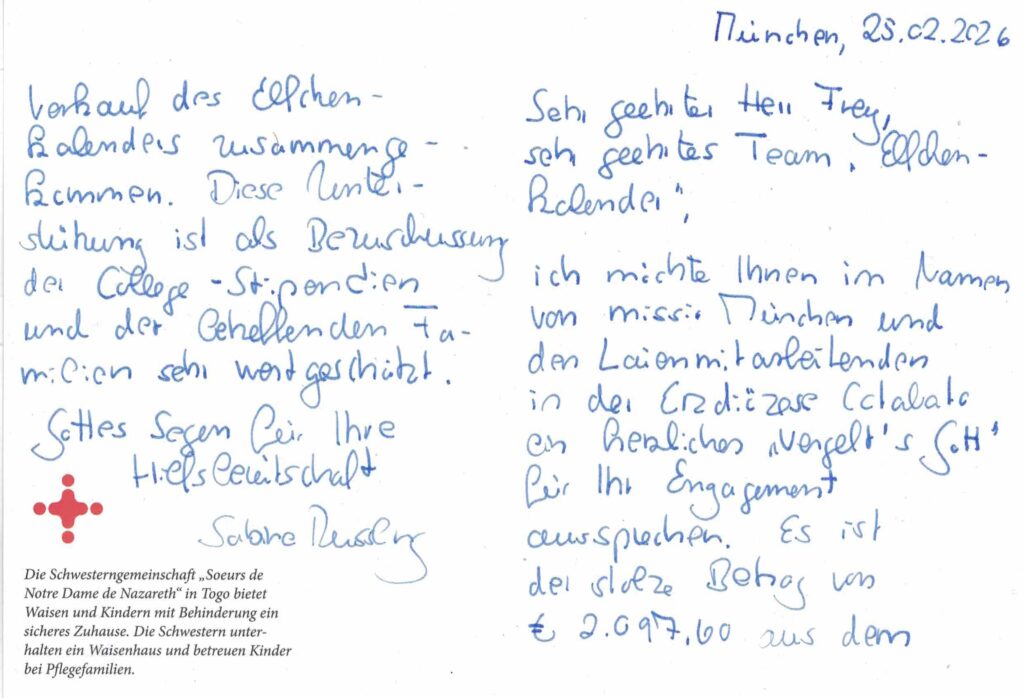 München, 25.02.2026
Sehr geehrter Herr Frey,
sehr geehrtes Team „Elfchen-
kalender",
ich möchte Ihnen im Namen
von missio München und
den Laienmitarbeitenden
in der Erzdiözese Cotabato
ein herzliches „Vergelt's Gott"
für Ihr Engagement
aussprechen. Es ist
der stolze Betrag von
€ 2.097,60 aus dem
Verkauf des Elfchen-
kalenders zusammenge-
kommen. Diese Unter-
stützung ist als Bezuschussung
der College-Stipendien
und der helfenden Fa-
milien sehr wertgeschätzt.
Gottes Segen für Ihre
Hilfsbereitschaft
Sabine
Die Schwesterngemeinschaft „Soeurs de
Notre Dame de Nazareth" in Togo bietet
Waisen und Kindern mit Behinderung ein
sicheres Zuhause. Die Schwestern unter-
halten ein Waisenhaus und betreuen Kinder
bei Pflegefamilien.